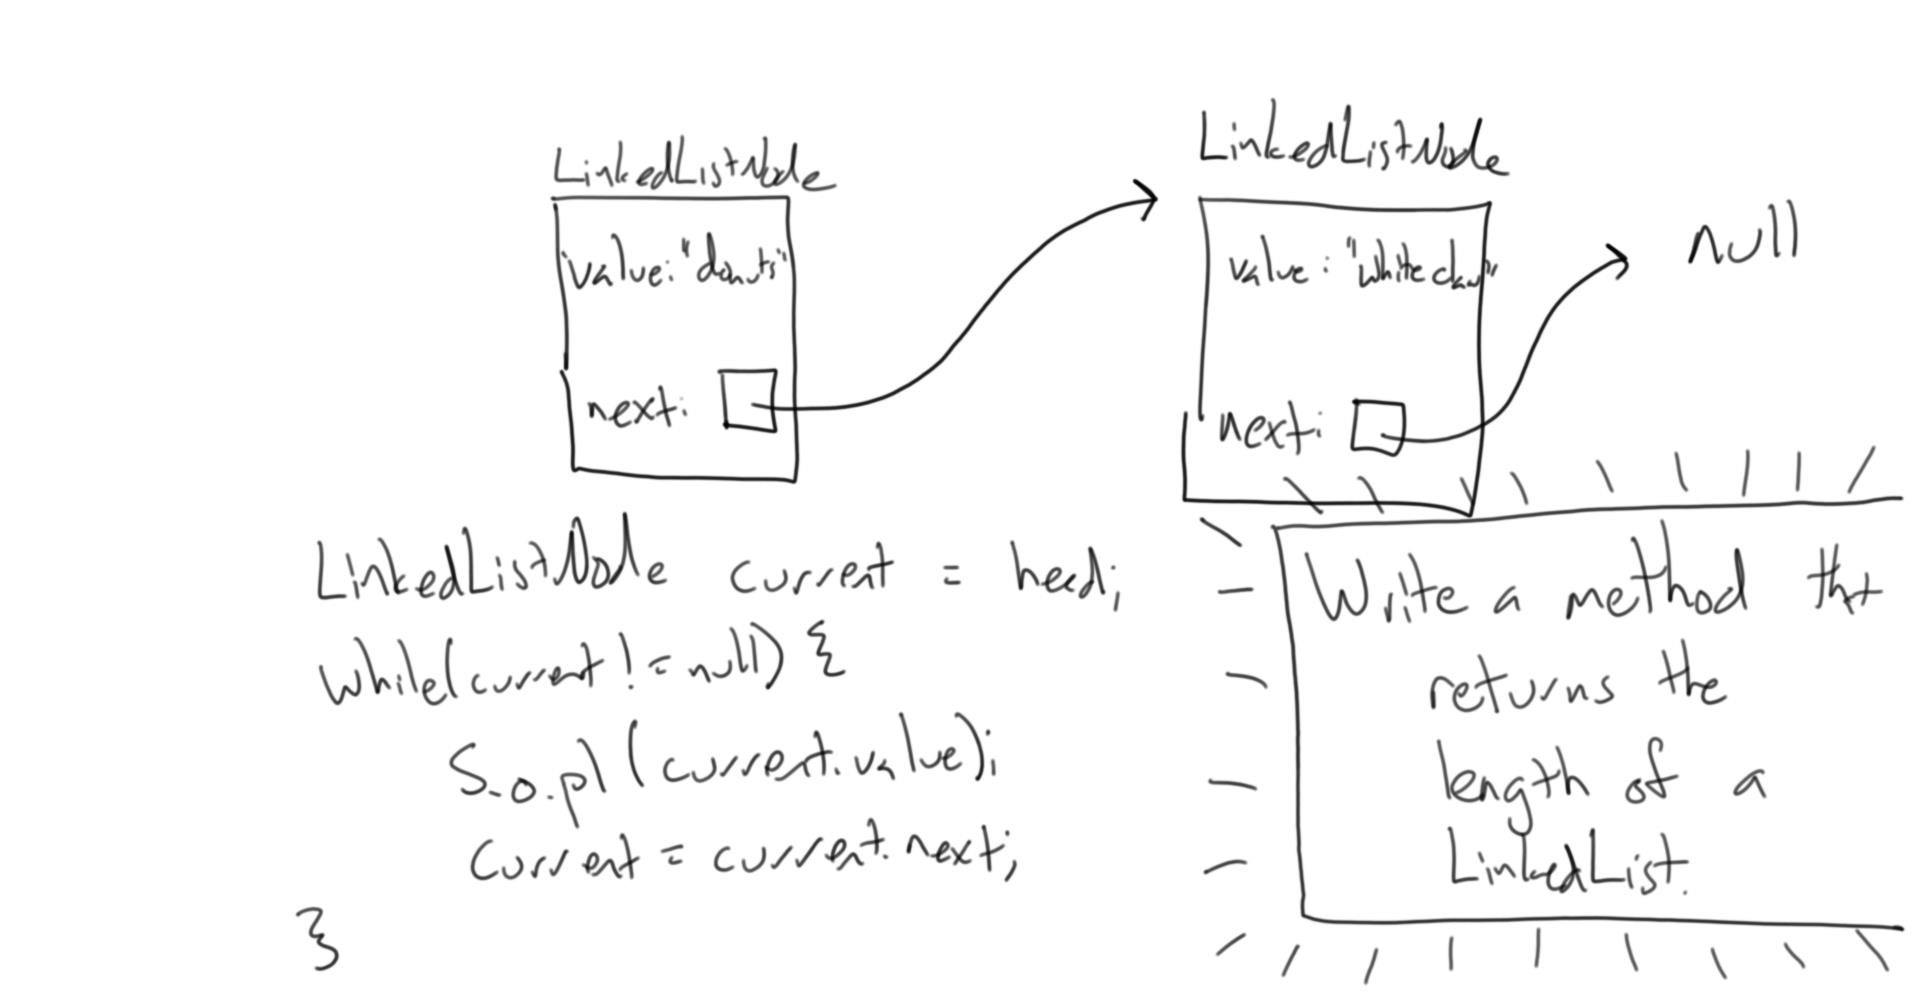 LinkedListNode
value: "donuts"
next:
LinkedListNode
value: "whiteclaw"
next:
null
LinkedListNode current = head;
while(current != null) {
S.o.pl(current.value);
current = current.next;
}
Write a method tht
returns the
length of a
LinkedList.